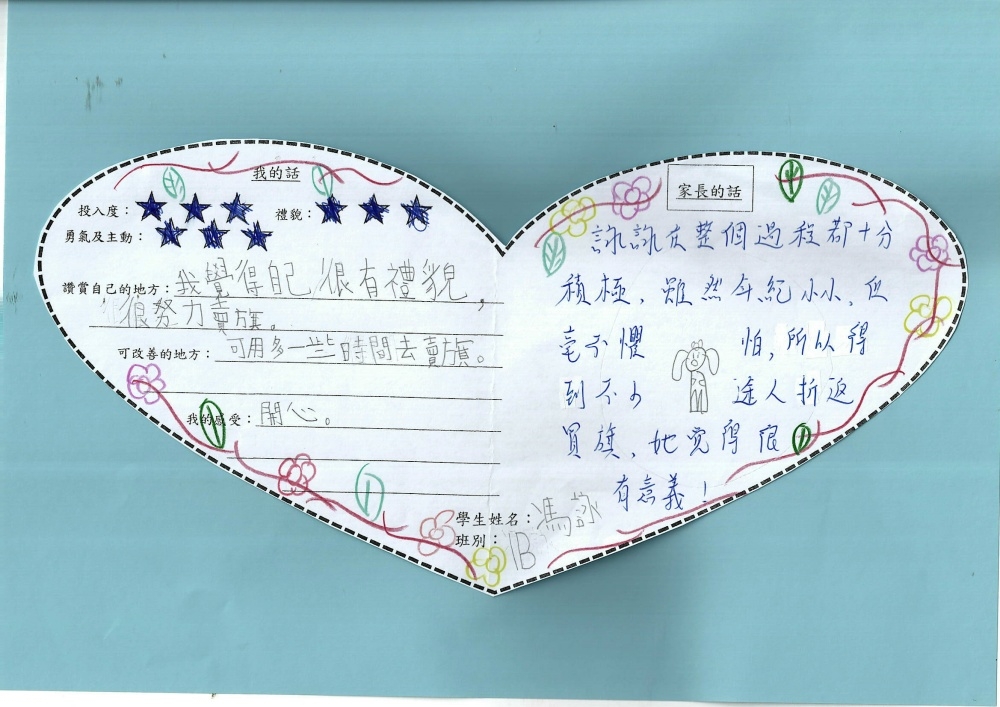 我的話
投入度：★★★ 禮貌：★★★
勇氣及主動：★★★
讚賞自己的地方：我覺得自己很有禮貌，
很努力賣旗。
可改善的地方：可用多一些時間去賣旗。
我的感受：開心。
家長的話
詠詠在整個過程都十分
積極，雖然年紀小小，但
毫不懼怕，所以得
到不少途人折返
買旗，她覺得很
有意義！
學生姓名：馮詠
班別：1B